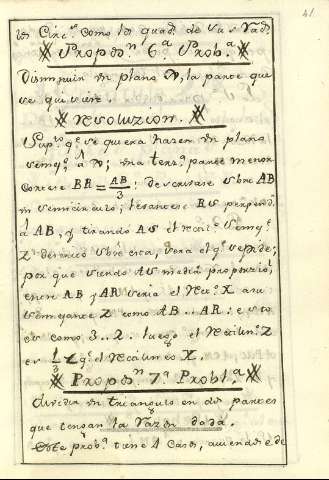 41
los Circ.s como los quad.s de sus Rad.s
Propos.n 6.a Prob.a
Disminuir un plano N, la parte que
se quisiere.
Resoluzion.
Sup.to q.e se quiera hazer un plano
semej.e á N; una terz.a parte menor
Cortese BR = AB/3 : descrivase sobre AB
un semicirculo; levantese RS perpend.
á AB, y tirando AS el rectil.o semej.e
Z descrito sobre ella, sera el q.e se pide;
por que siendo AS media proporcio.l
entre AB y AR seria el Rec.o X a su
semejante Z como AB .. AR: esto
es como 3 .. 2. luego el Rectilin.o Z
es 1/3 q.e el rectilineo X.
Propos.n 7.a Probl.a
Dividir un triangulo en dos partes
que tengan la razon dada.
Este prob.a tiene 4 Casos, aviendose de